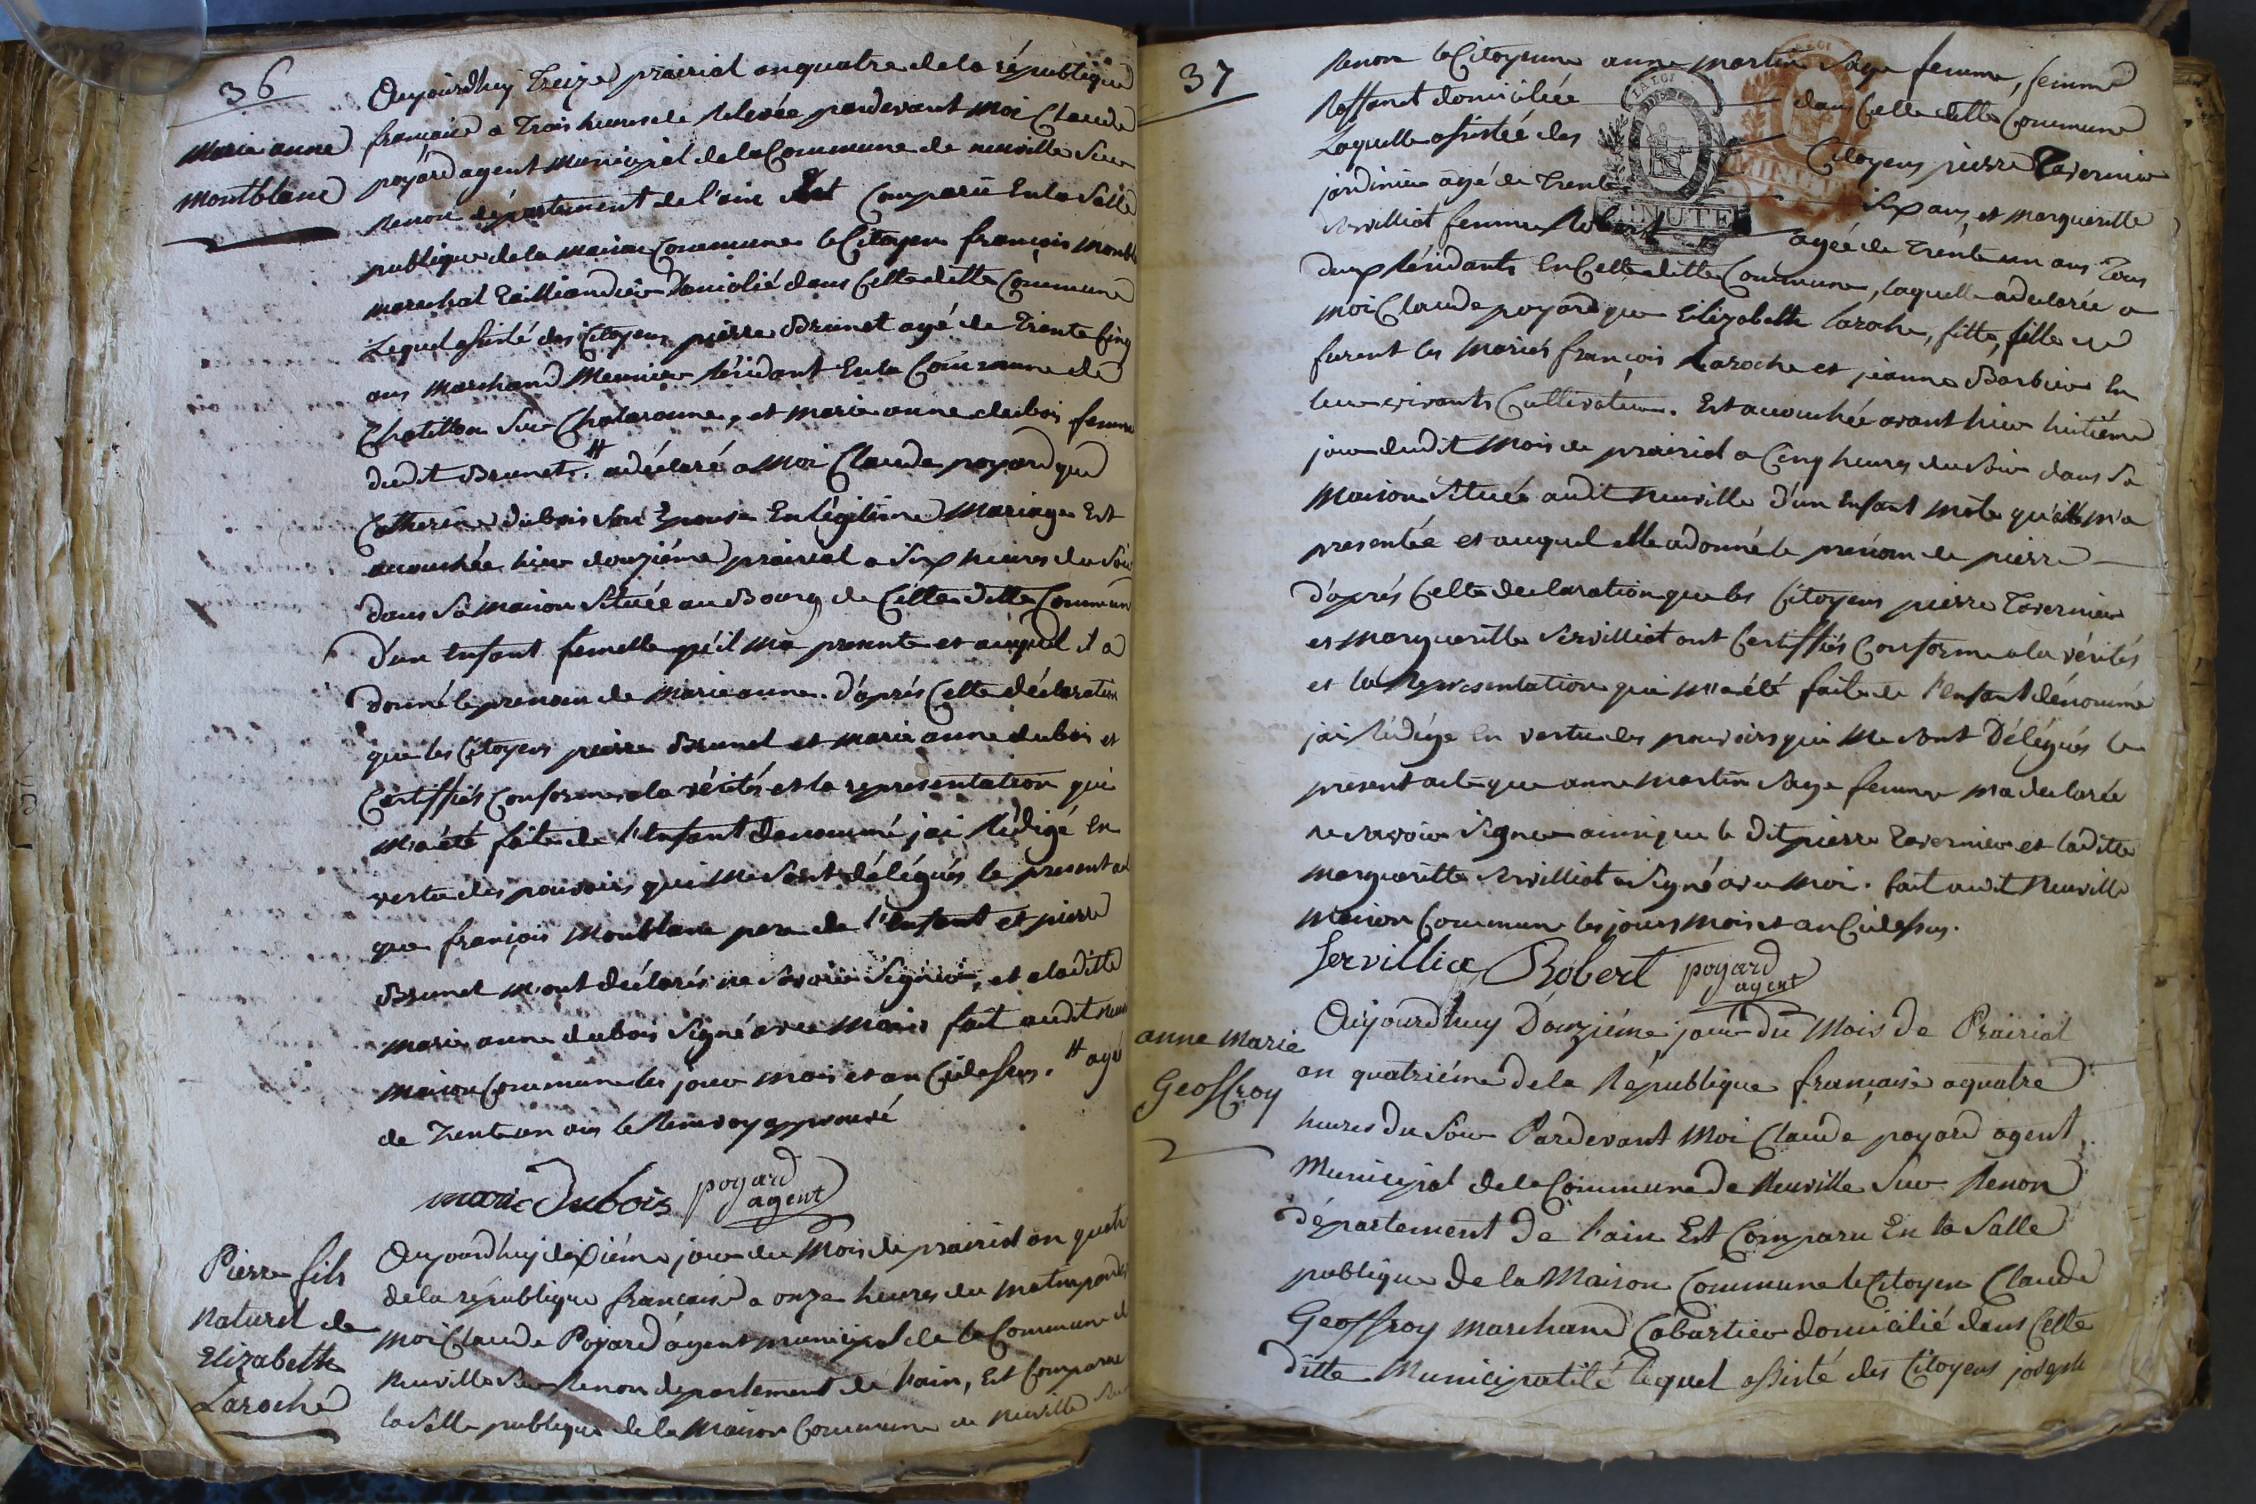 36
Marie anne
Montblanc
Aujourdhuy Treize prairial an quatre de la république
française a Trois heures de Relevée pardevant Moi Claude
poyard agent Municipal de la Commune de neuville Sur
Renon département de l'ain Est Comparû En la Salle
publique de la maison Commune le Citoyen françois Montbl
marechal Taillandier Domicilié dans Cette ditte Commune
Lequel assisté des Citoyens pierre Brunet agé de Trente Cinq
ans Marchand Meunier Résidant En la Commune de
Chatillon Sur Chalaronne, et Marie anne dubois femme
dudit Brunet, # a déclaré a Moi Claude poyard que
Catherine dubois Son Epouse En légitime Mariage Est
accouchée hier douziéme prairial a Six heures du Soir
dans Sa maison Située au Bourg de Cette ditte Commun
d'un Enfant femelle qu'il ma presenté et auquel il a
donné le prenom de Marie anne. d'aprés Cette déclaration
que les Citoyens pierre Brunet et Marie anne dubois et
Certiffiés Conforme a la vérités et la representation qui
M'a été faite de l'Enfant denommé jai Rédigé En
vertu des pouvoirs qui Me Sont délégués le present ac
que françois Montblanc pere de l'enfant et pierre
Brunet m'ont déclarés ne Savoir Signer, et a laditte
Marie anne dubois Signé avec Moi fait audit neuv
Maison Commune les jour mois et an Cidessus. # agé
de Trente un ans le Renvoy approuvé
marie Dubois poyard
agent
Pierre fils
Naturel de
Elizabeth
Laroche
Aujourdhuy dixiéme jour du Mois de prairial an quatr
de la république française a onze heures du matin parde
Moi Claude Poyard agent municipal de la Commune d
Neuville Sur Renon departement de l'ain, Est Comparue
la Salle publique de la Maison Commune de Neuville Su
37
Renon la Citoyenne anne Martin Sage femme, femme
Roffanet domiciliée dans Cette ditte Commune
Laquelle assistée des Citoyens pierre Tavernier
jardinier agé de Trente Six ans, et Margueritte
Servilliat femme Robert agée de Trente un ans Tous
deux Résidants En Cette ditte Commune, laquelle a declarée a
Moi Claude poyard que Elizabeth Laroche, fitte, fille de
furent les Mariés françois Laroche et jeanne Barbier En
leur vivants Cultivateurs. Est accouchée avant hier huitiéme
jour dudit Mois de prairial a Cinq heures du Soir dans Sa
Maison Située audit Neuville d'un Enfant Mâle qu'elle m'a
presentée et auquel Elle a donné le prénom de pierre
d'aprés Cette declaration que les Citoyens pierre Tavernier
et Margueritte Servilliat ont Certiffiés Conforme a la vérités
et la Representation qui M'a été faite de l'enfant dénommé
jai Rédigé En vertu des pouvoirs qui Me Sont Délégués le
present acte que anne Martin Sage femme m'a declarée
ne Savoir Signer ainsi que le dit pierre Tavernier et laditte
Margueritte Servilliat a Signé avec Moi. fait audit Neuville
Maison Commune les jours Mois et an Cidessus.
Servilliat Robert poyard
agent
anne Marie
Geoffroy
Aujourdhuy Douziéme jour du Mois de Prairial
an quatriéme de la République française a quatre
heures du Soir Pardevant Moi Claude poyard agent
Municipal de la Commune de Neuville Sur Renon
département de l'ain Est Comparu En la Salle
publique de la Maison Commune le Citoyen Claude
Geoffroy Marchand Cabartier domicilié dans Cette
ditte Municipalité lequel assisté des Citoyens joseph
LA LOI
MINUTE